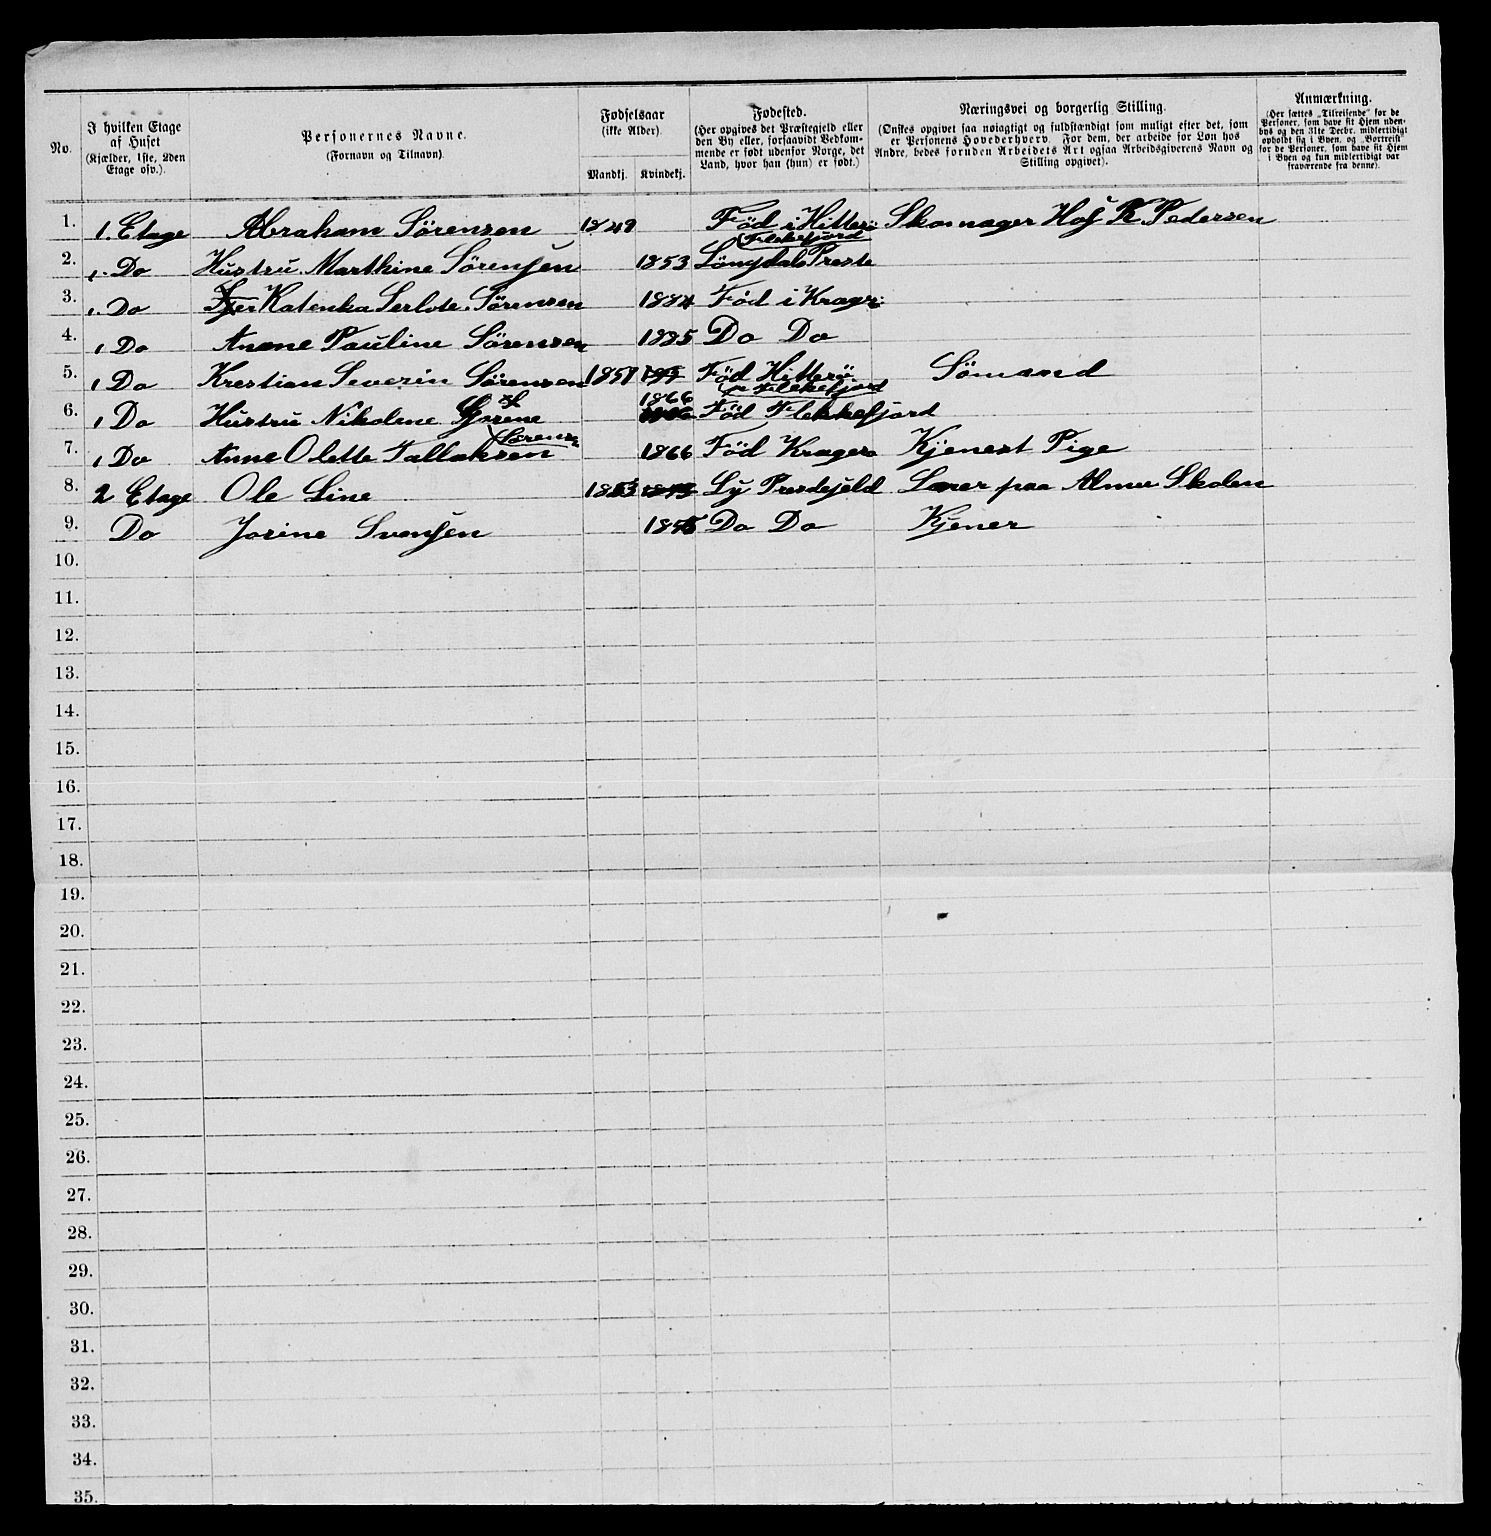 No.
I hvilken Etage af Huset (Kjælder, 1ste, 2den Etage osv.).
Personernes Navne. (Fornavn og Tilnavn).
Fødselsaar (ikke Alder). Mandkj. Kvindekj.
Fødested. (Her opgives det Præstegjeld eller den By eller, forsaavidt Vedkommende er født udenfor Norge, det Land, hvor han (hun) er født.)
Næringsvei og borgerlig Stilling. (Ønskes opgivet saa nøiagtigt og fuldstændigt som muligt efter det, som er Personens Hovederhverv. For dem, der arbeide for Løn hos Andre, bedes foruden Arbeidets Art ogsaa Arbeidsgiverens Navn og Stilling opgivet).
Anmærkning. (Her sættes „Tilreisende“ for de Personer, som have sit Hjem udenbys og den 31te Decbr. midlertidigt opholdt sig i Byen, og „Bortreist“ for de Personer, som have sit Hjem i Byen og kun midlertidigt var fraværende fra denne).
1. 1. Etage Abraham Sörensen 1849 Föd i Hitterö Flekefjord Skomager Hos R. Pedersen
2. 1. Do Hustru Marthine Sörensen 1853 Löngdals Preste
3. 1. Do Katenka Serlote Sörensen 1884 Föd i Kragerö
4. 1 Do Anne Pauline Sörensen 1885 Do Do
5. 1 Do Krestian Severin Sörensen 1857 Föd Hitterö pr Flekefjord Sömand
6. 1 Do Hustru Nikolene Sörensen 1866 Föd Flekkefjord
7. 1 Do Anne Olette Tallaksen 1866 Föd Kragerö Kjenest Pige
8. 2 Etage Ole Line 1853 Ly Prestejeld Lærer paa Almu Skolen
9. Do Josine Svensen 1845 Do Do Kjener
10.
11.
12.
13.
14.
15.
16.
17.
18.
19.
20.
21.
22.
23.
24.
25.
26.
27.
28.
29.
30.
31.
32.
33.
34.
35.